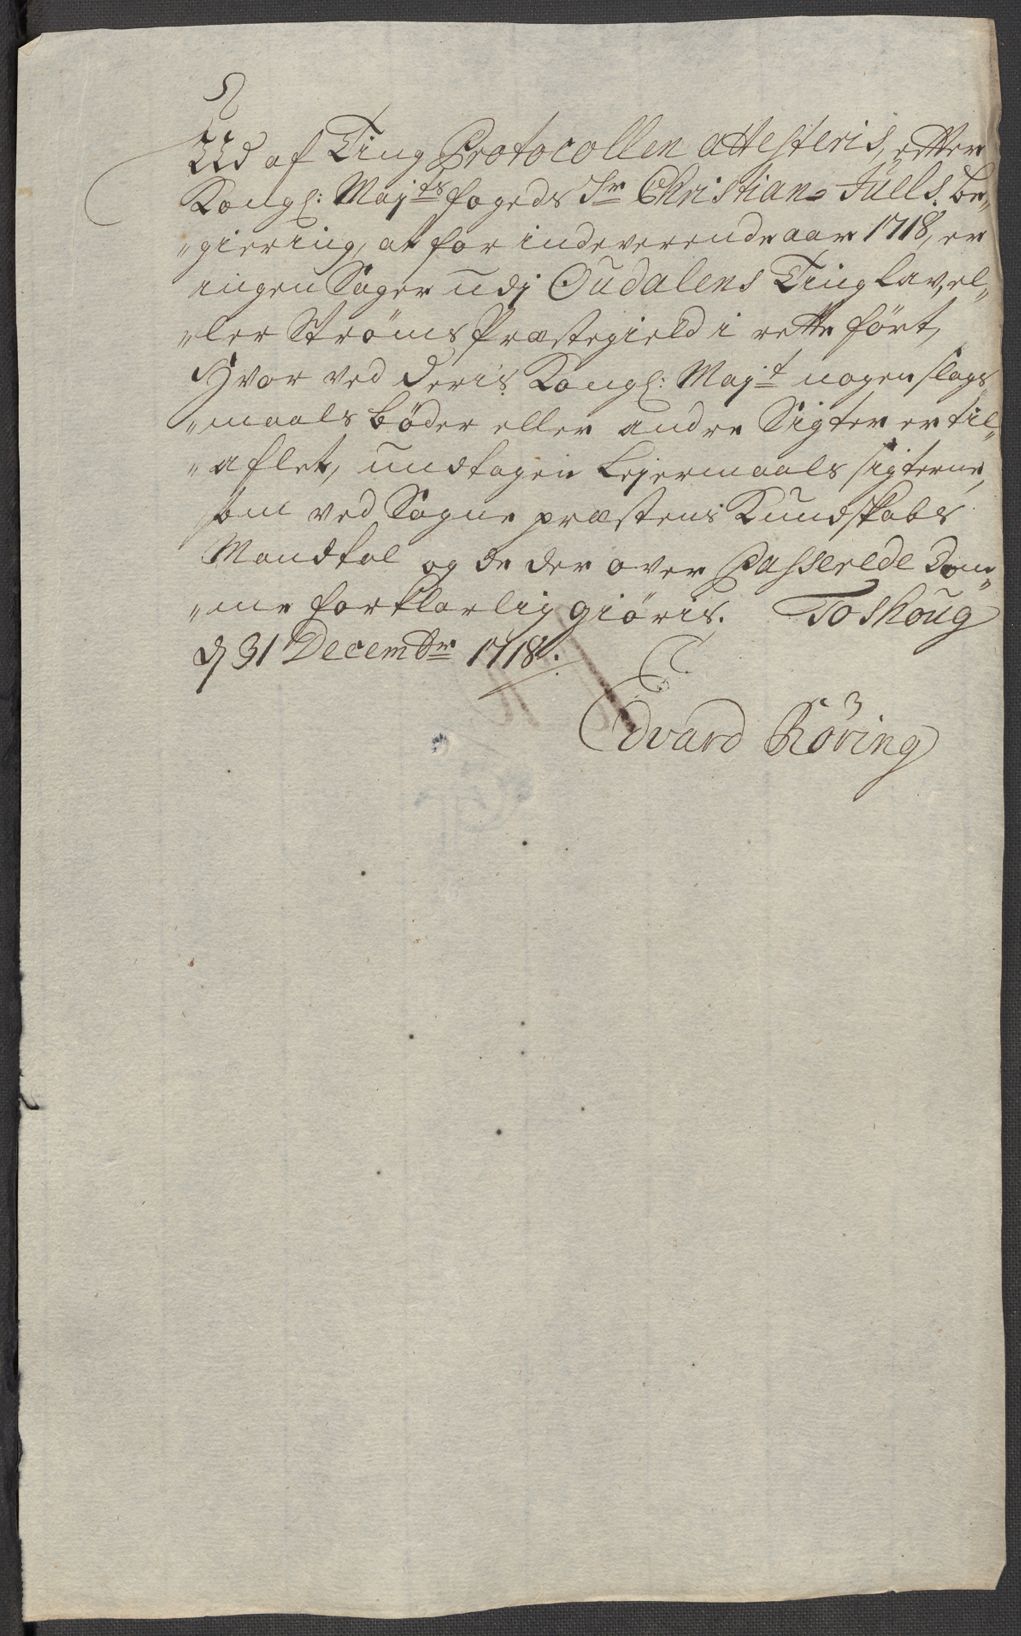 Ud af Ting Protocollen attesteris, efter
Kongl: Majts fogeds Sr Christian Juells be„
„giering, at for indeverende aar 1718, er
ingen Sager udj Oudalens Tinglav, el„
„ler Strøms Præstegield i rette ført,
Hvor ved Deris Kongl: Mayt nogen slags„
„maals bøder eller andre Sigter er til„
„aflet, undtagen Lejermaals sigterne,
som ved Sogne præstens Kundskabs
Mandtal og de der over Passerede Dom„
„me forklarlig giøris. Toshoug
d 31 Decembr 1718.
Edvard Röring